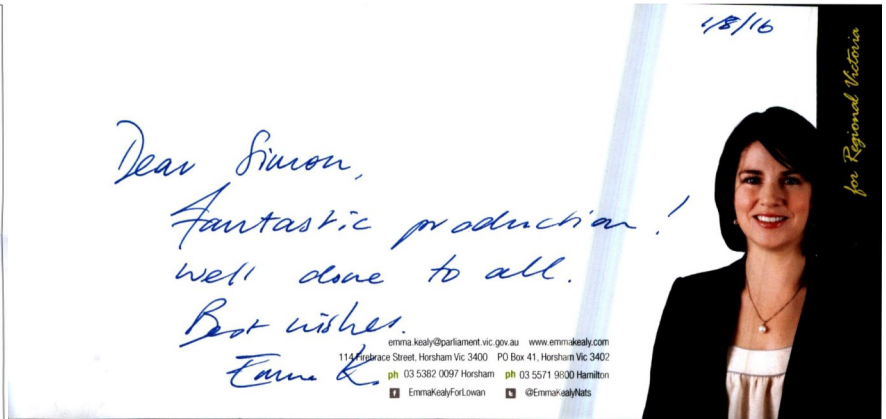 1/8/16
for Regional Victoria
Dear Simon,
Fantastic production!
Well done to all.
Best wishes.
Emma K.
emma.kealy@parliament.vic.gov.au www.emmakealy.com
114 Firebrace Street, Horsham Vic 3400 PO Box 41, Horsham Vic 3402
ph 03 5382 0097 Horsham ph 03 5571 9800 Hamilton
EmmaKealyForLowan @EmmaKealyNats